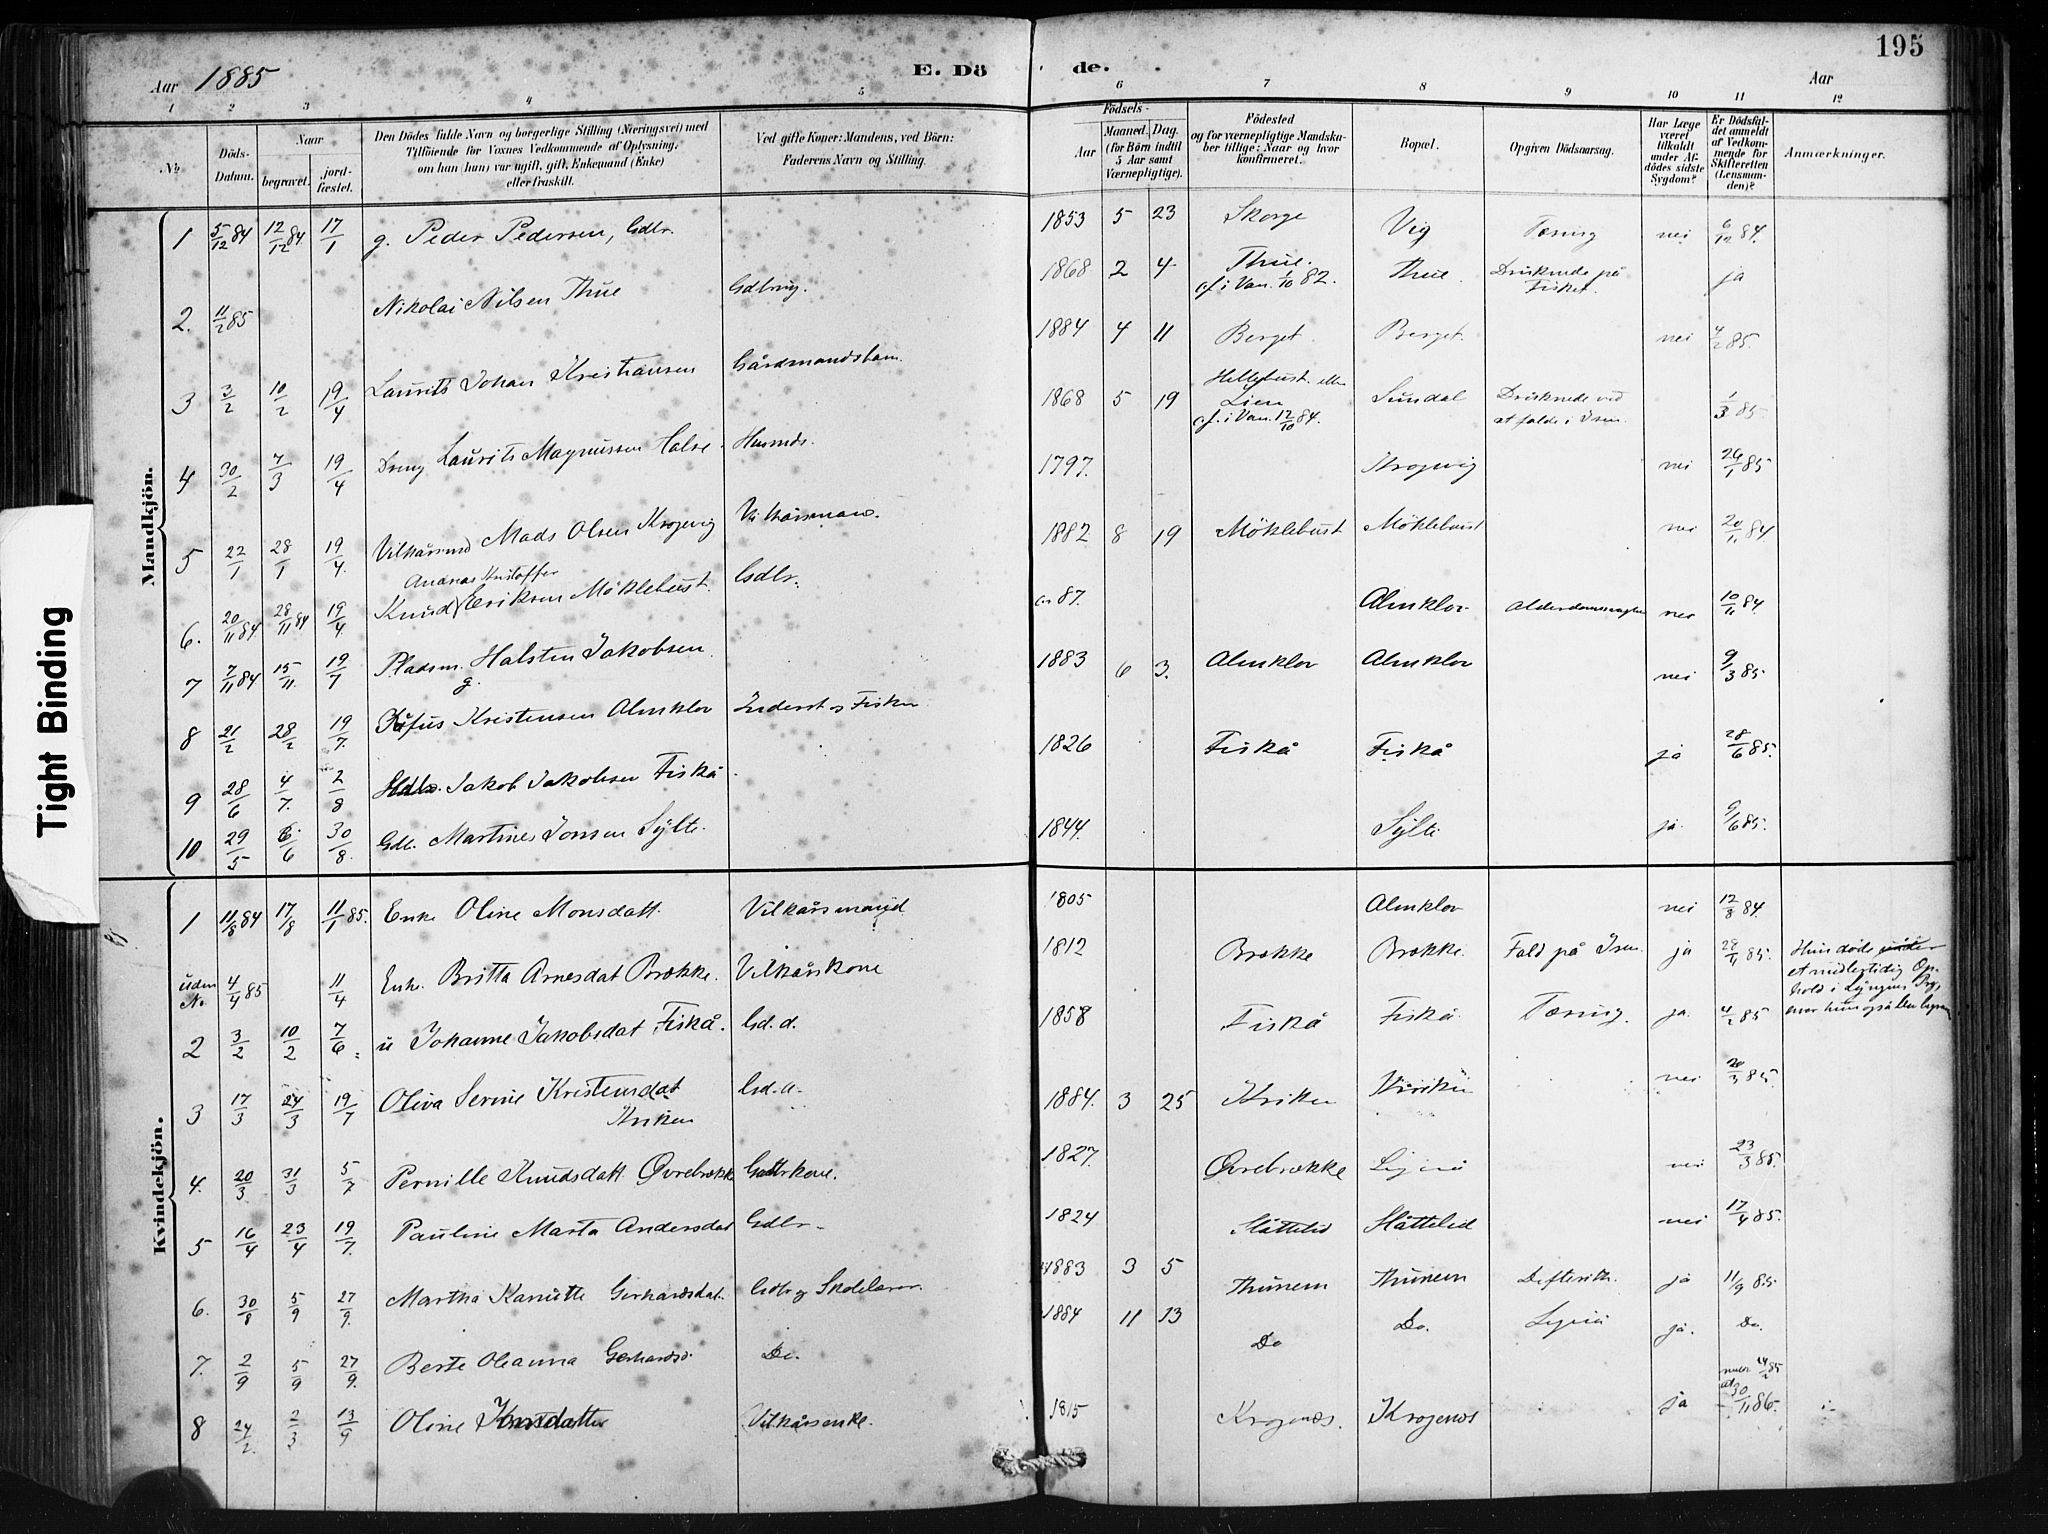 195
Aar 1885
E. Dö de.
Aar
1 2 3 4 5 6 7 8 9 10 11 12
No.
Döds-Datum.
Naar
begravet.
jord-fæstet.
Den Dödes fulde Navn og borgerlige Stilling (Næringsvei) med
Tilföiende for Voxnes Vedkommende af Oplysning,
om han (hun) var ugift, gift, Enkemand (Enke)
eller fraskilt.
Ved gifte Koner: Mandens, ved Börn:
Faderens Navn og Stilling.
Födsels-
Aar
Maaned.
Dag.
(for Börn indtil
5 Aar samt
Værnepligtige).
Födested
og for værnepligtige Mandska-
ber tillige: Naar og hvor
konfirmeret.
Bopæl.
Opgiven Dödsaarsag.
Har Læge
været
tilkaldt
under Af-
dödes sidste
Sygdom?
Er Dödsfal-
det anmeldt
af Vedkom-
mende for
Skifteretten
(Lensman-
den)?
Anmærkninger.
Mandkjön.
1 5/12 84 12/12 84 17/1 g. Peder Pedersen, Gdbr. 1853 5 23 Skorge Vig Tæring nei 6/12 84.
2. 11/2 85 Nikolai Nilsen Thue 1868 2 4 Thue. cf. i Van. 1/10 82. Thue. Druknede på Fisket. ja
3 3/2 10/2 19/4 Laurits Johan Kristiansen Gårdmandsbarn. 1884 4 11 Berget Berget. nei 4/2 85.
4 30/2 7/3 19/4 Dreng Laurits Magnussen Husmds. 1868 5 19 Lien cf. i Van. 12/10 84. Sundal Druknede ved at falde i Isen. 1/3 85
5 22/1 28/1 19/4. Mads Olsen Krogevig Vilkårsmand. 1797. nei 26/1 85
6. 20/11 84 28/11 84 19/4 Knud Eriksen Möklebust. Gdbr. 1882 8 19 Möklebust Möklebust nei 20/11 84.
7 7/11 84 15/11. 19/7 Pladsm. g. Halsten Jakobsen 87. Almklov nei 10/11 84
8 21/2 28/2 19/7. Kristensen Almklov Inderst og Fisker 1883 6 3. Almklov Almklov nei 9/3 85
9 28/6 4/7. 2/8 Jakob Jakobsen Fiskå 1826 Fiskå Fiskå ja 28/6 85.
10 29/5 6/6 30/8. Gdbr. Martines Jonsen Sylte. 1844. Sylte ja. 9/6 85.
Kvindekjön.
1 11/8 84 17/8 11/1 85. Enke Oline Monsdatt. 1805 Almklov nei 12/8 84.
uden No. 4/4 85 11/4 Enke. Britta Arnesdat Brække. Vilkårskone 1812 Brække Brække. Fald på Isen. ja 28/11 85. Hun døde under et midlertidig Op-hold i
2 3/2 10/2 7/6 u Johanne Jakobsdat Fiskå. Gd. d. 1858 Fiskå Fiskå Tæring. ja. 4/2 85
3 17/3 24/3 19/7 Oliva Serine Kristensdat Kriken 1884. 3 25 Kriken nei 20/3 85
4. 20/3 31/3 5/7 Pernille Knudsdatt. Øvrebrække 1827. Øvrebrække nei 23/3 85.
5 16/4 23/4 19/7. Pauline Marta Andersdat Gdbr. 1824 Slåttelid Slåttelid nei 17/4 85.
6. 30/8 5/9 27/9. Martha Kanutte Gerhardsdat. Gdbr og Skolelærer. 1883 3 5 Thunem Thunem Defterith. ja 11/9 85
7. 2/9 5/9 27/9. Berte Oleanna Gerhardsd. Do. 1884 11 13 Do Do. ja. Do.
8 24/2. 2/3 13/9 Oline Vilkårsenke. 1815 Krogenæs. Krogenæs ja 30/11 86.
Tight Binding